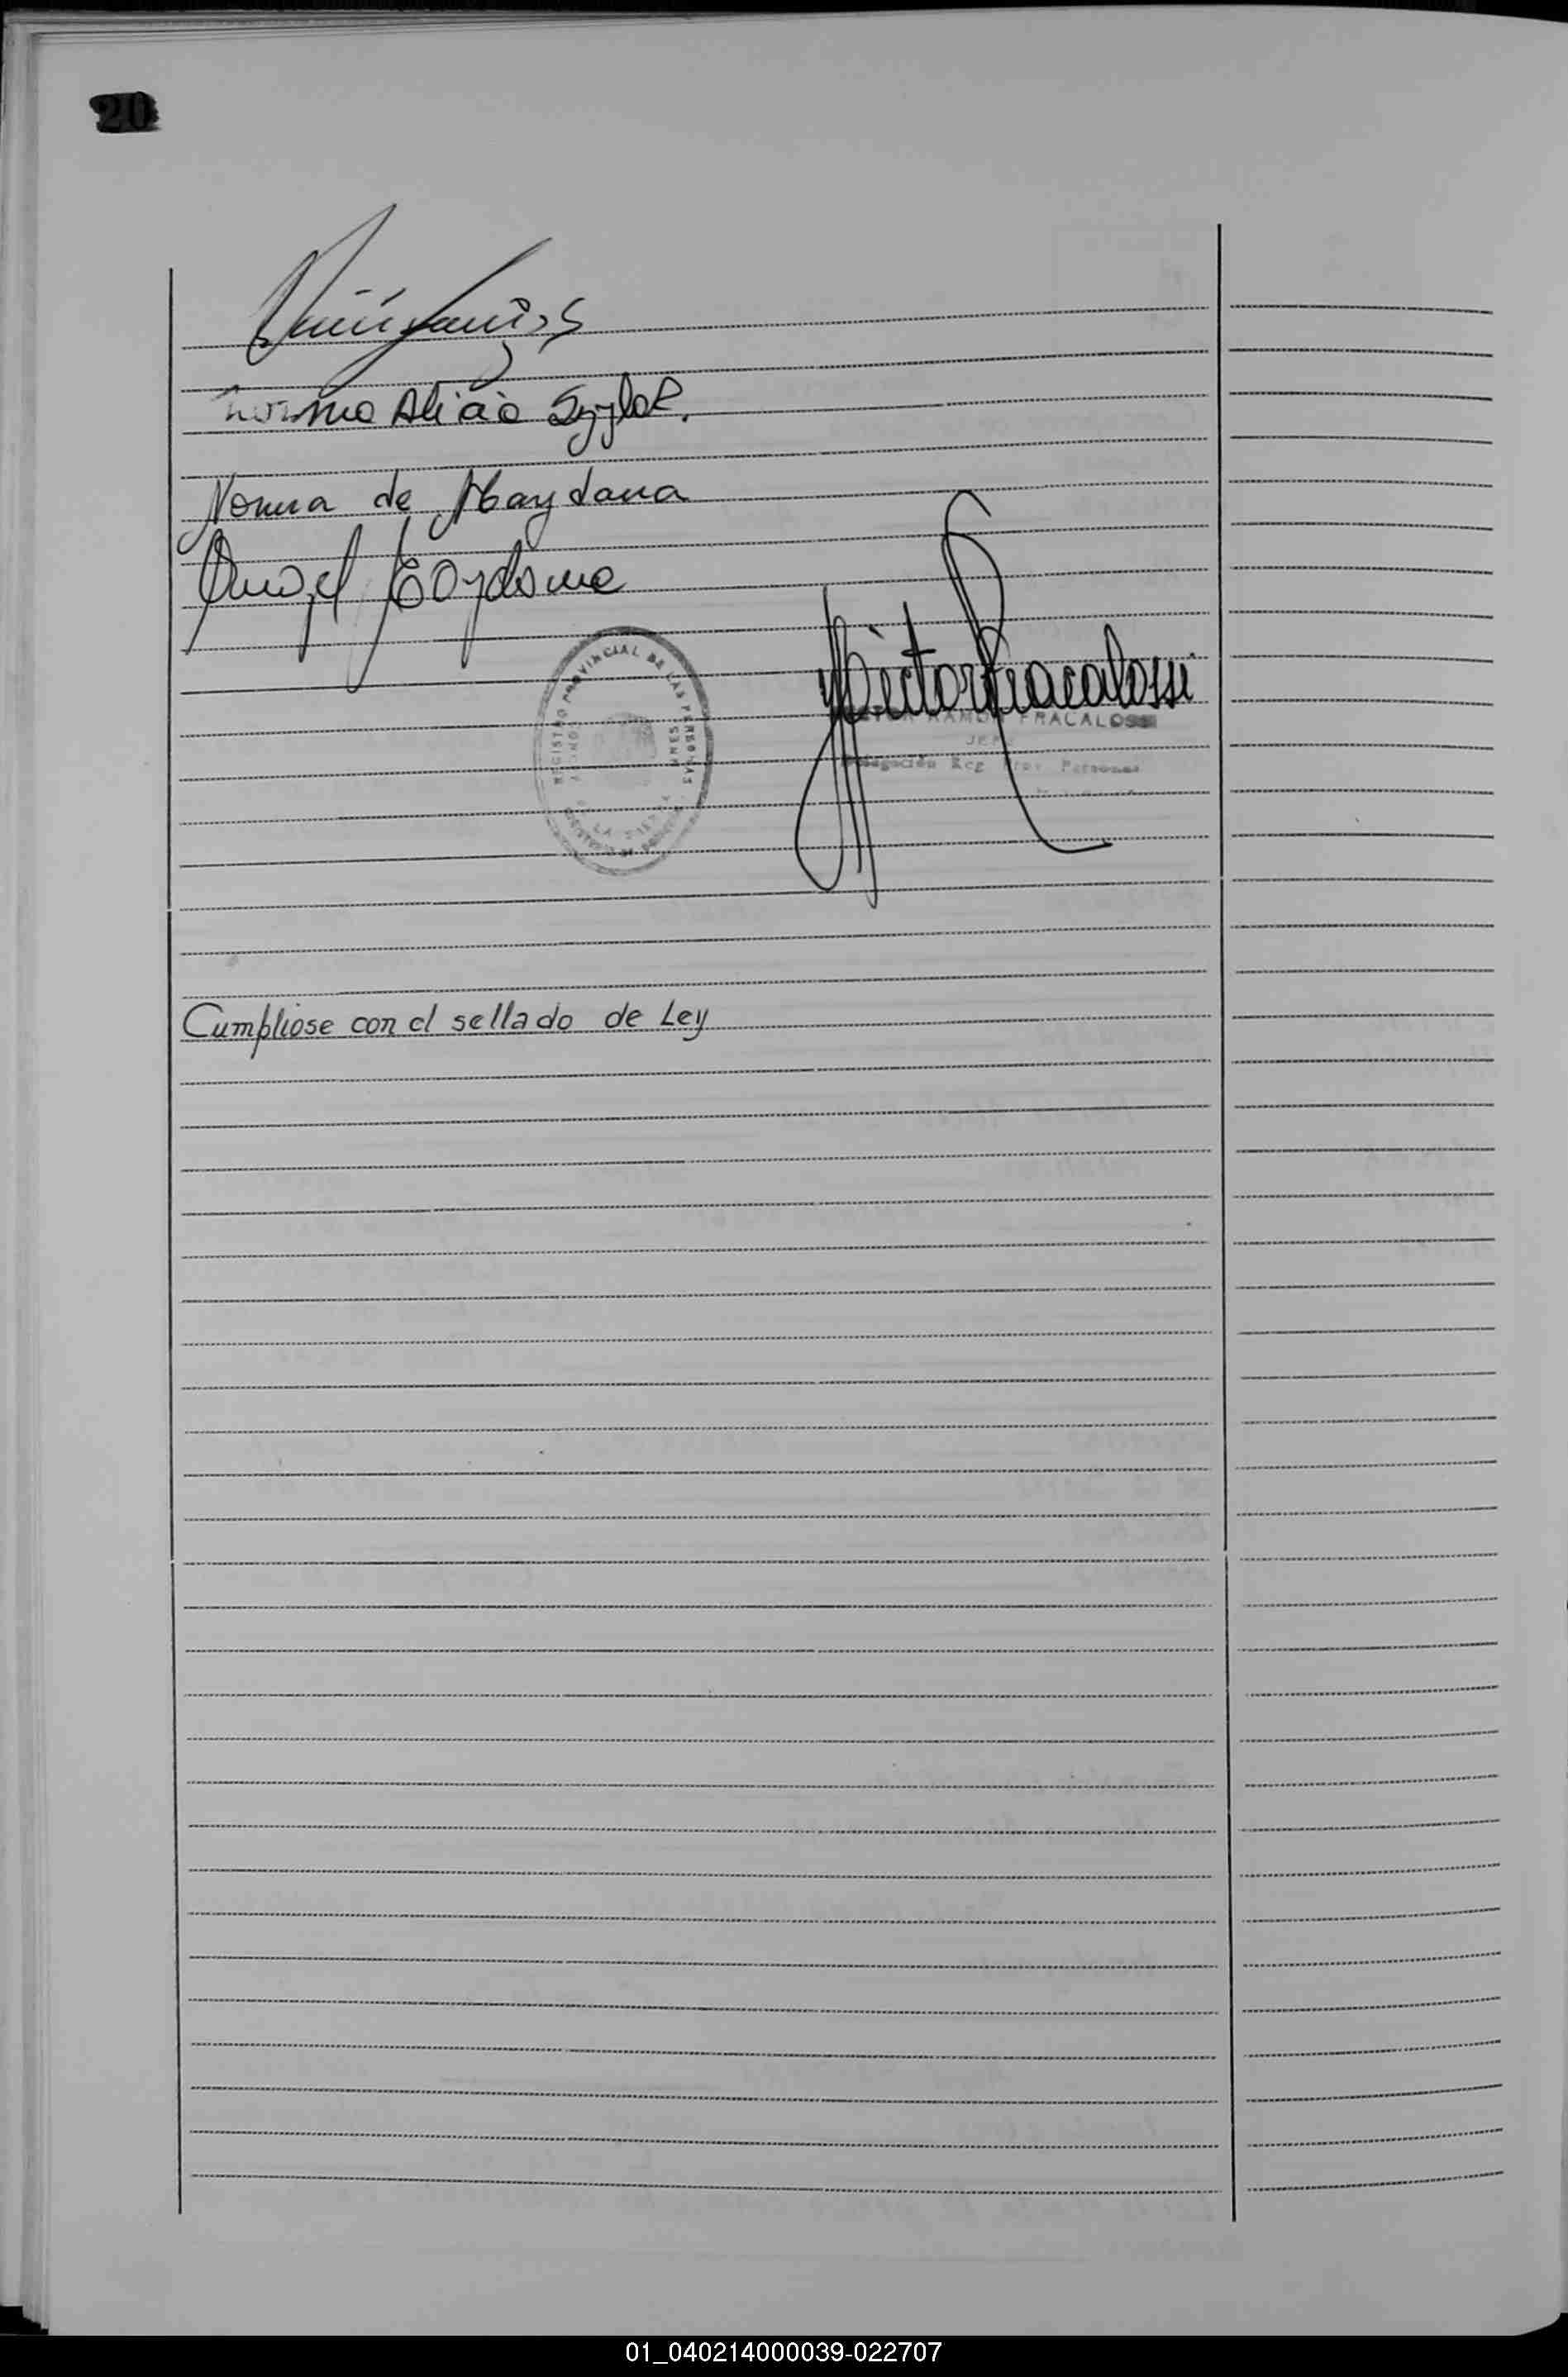 20
Norma Alicia Szylak.
Norma de Maydana
Angel Maydana
Hector Fracalossi
REGISTRO PROVINCIAL DE LAS PERSONAS
RAMON FRACALOSSI
JEFE
Delegación Reg Prov Personas
Cumpliose con el sellado de Ley
01_040214000039-022707